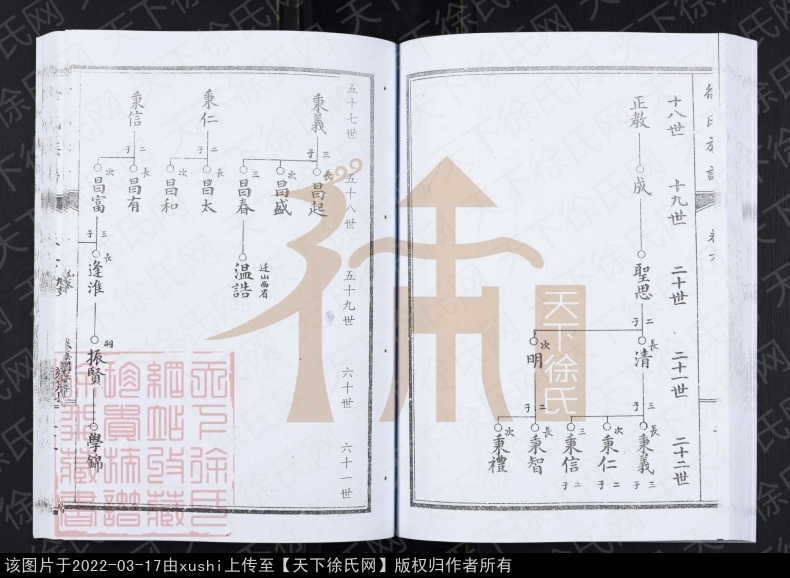 徐氏族譜
十八世
正穀
十九世
成
二十世
聖思
二子
二十一世
長 清
三子
次 明
二子
二十二世
長 秉義 三子
次 秉仁 二子
三 秉信 二子
長 秉智
次 秉禮
五十七世
秉義
三子
秉仁
二子
秉信
二子
五十八世
長 昌起
次 昌盛
三 昌春
長 昌太
次 昌和
長 昌有
次 昌富
三子
五十九世
温誥 迁山西省
長 逢淮
六十世
嗣 振賢
六十一世
學錦
天下徐氏
天下徐氏网
该图片于2022-03-17由xushi上传至【天下徐氏网】版权归作者所有